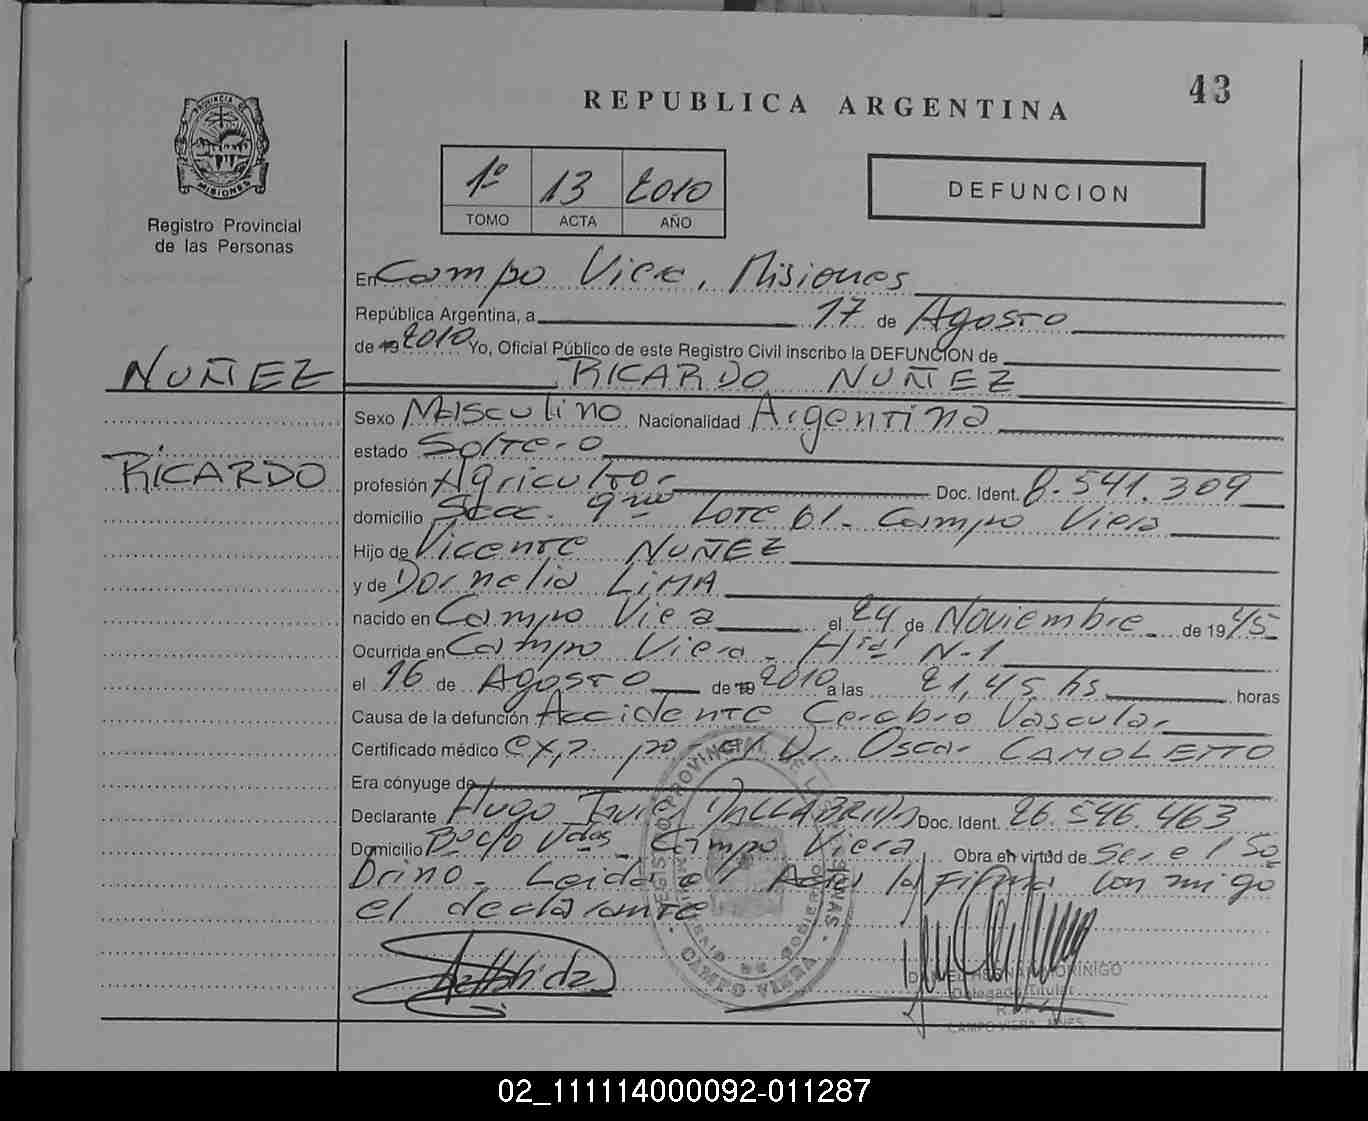 43
REPUBLICA ARGENTINA
PROVINCIA DE
MISIONES
Registro Provincial
de las Personas
1º 13 2010
TOMO ACTA AÑO
DEFUNCION
En Campo Viera, Misiones
República Argentina, a 17 de Agosto
de 19 2010 Yo, Oficial Público de este Registro Civil inscribo la DEFUNCION de
NUÑEZ RICARDO NUÑEZ
Sexo Masculino Nacionalidad Argentina
estado Soltero
RICARDO
profesión Agricultor Doc. Ident. 8.541.309
domicilio Secc. 9na Lote 61. Campo Viera
Hijo de Vicente NUÑEZ
y de Dornelia LIMA
nacido en Campo Viera el 24 de Noviembre de 1945
Ocurrida en Campo Viera - N-1
el 16 de Agosto de 19 2010 a las 21,45 hs horas
Causa de la defunción Accidente Cerebro Vascular
Certificado médico exp. por el Dr. Oscar CAMOLETTO
Era cónyuge de
Declarante Hugo DALLABRIDA Doc. Ident. 26.546.463
Domicilio Campo Viera Obra en virtud de ser el So
Brino. Leida el Acta la Firma conmigo
el declarante
Delegado Titular
CAMPO VIERA
02_111114000092-011287